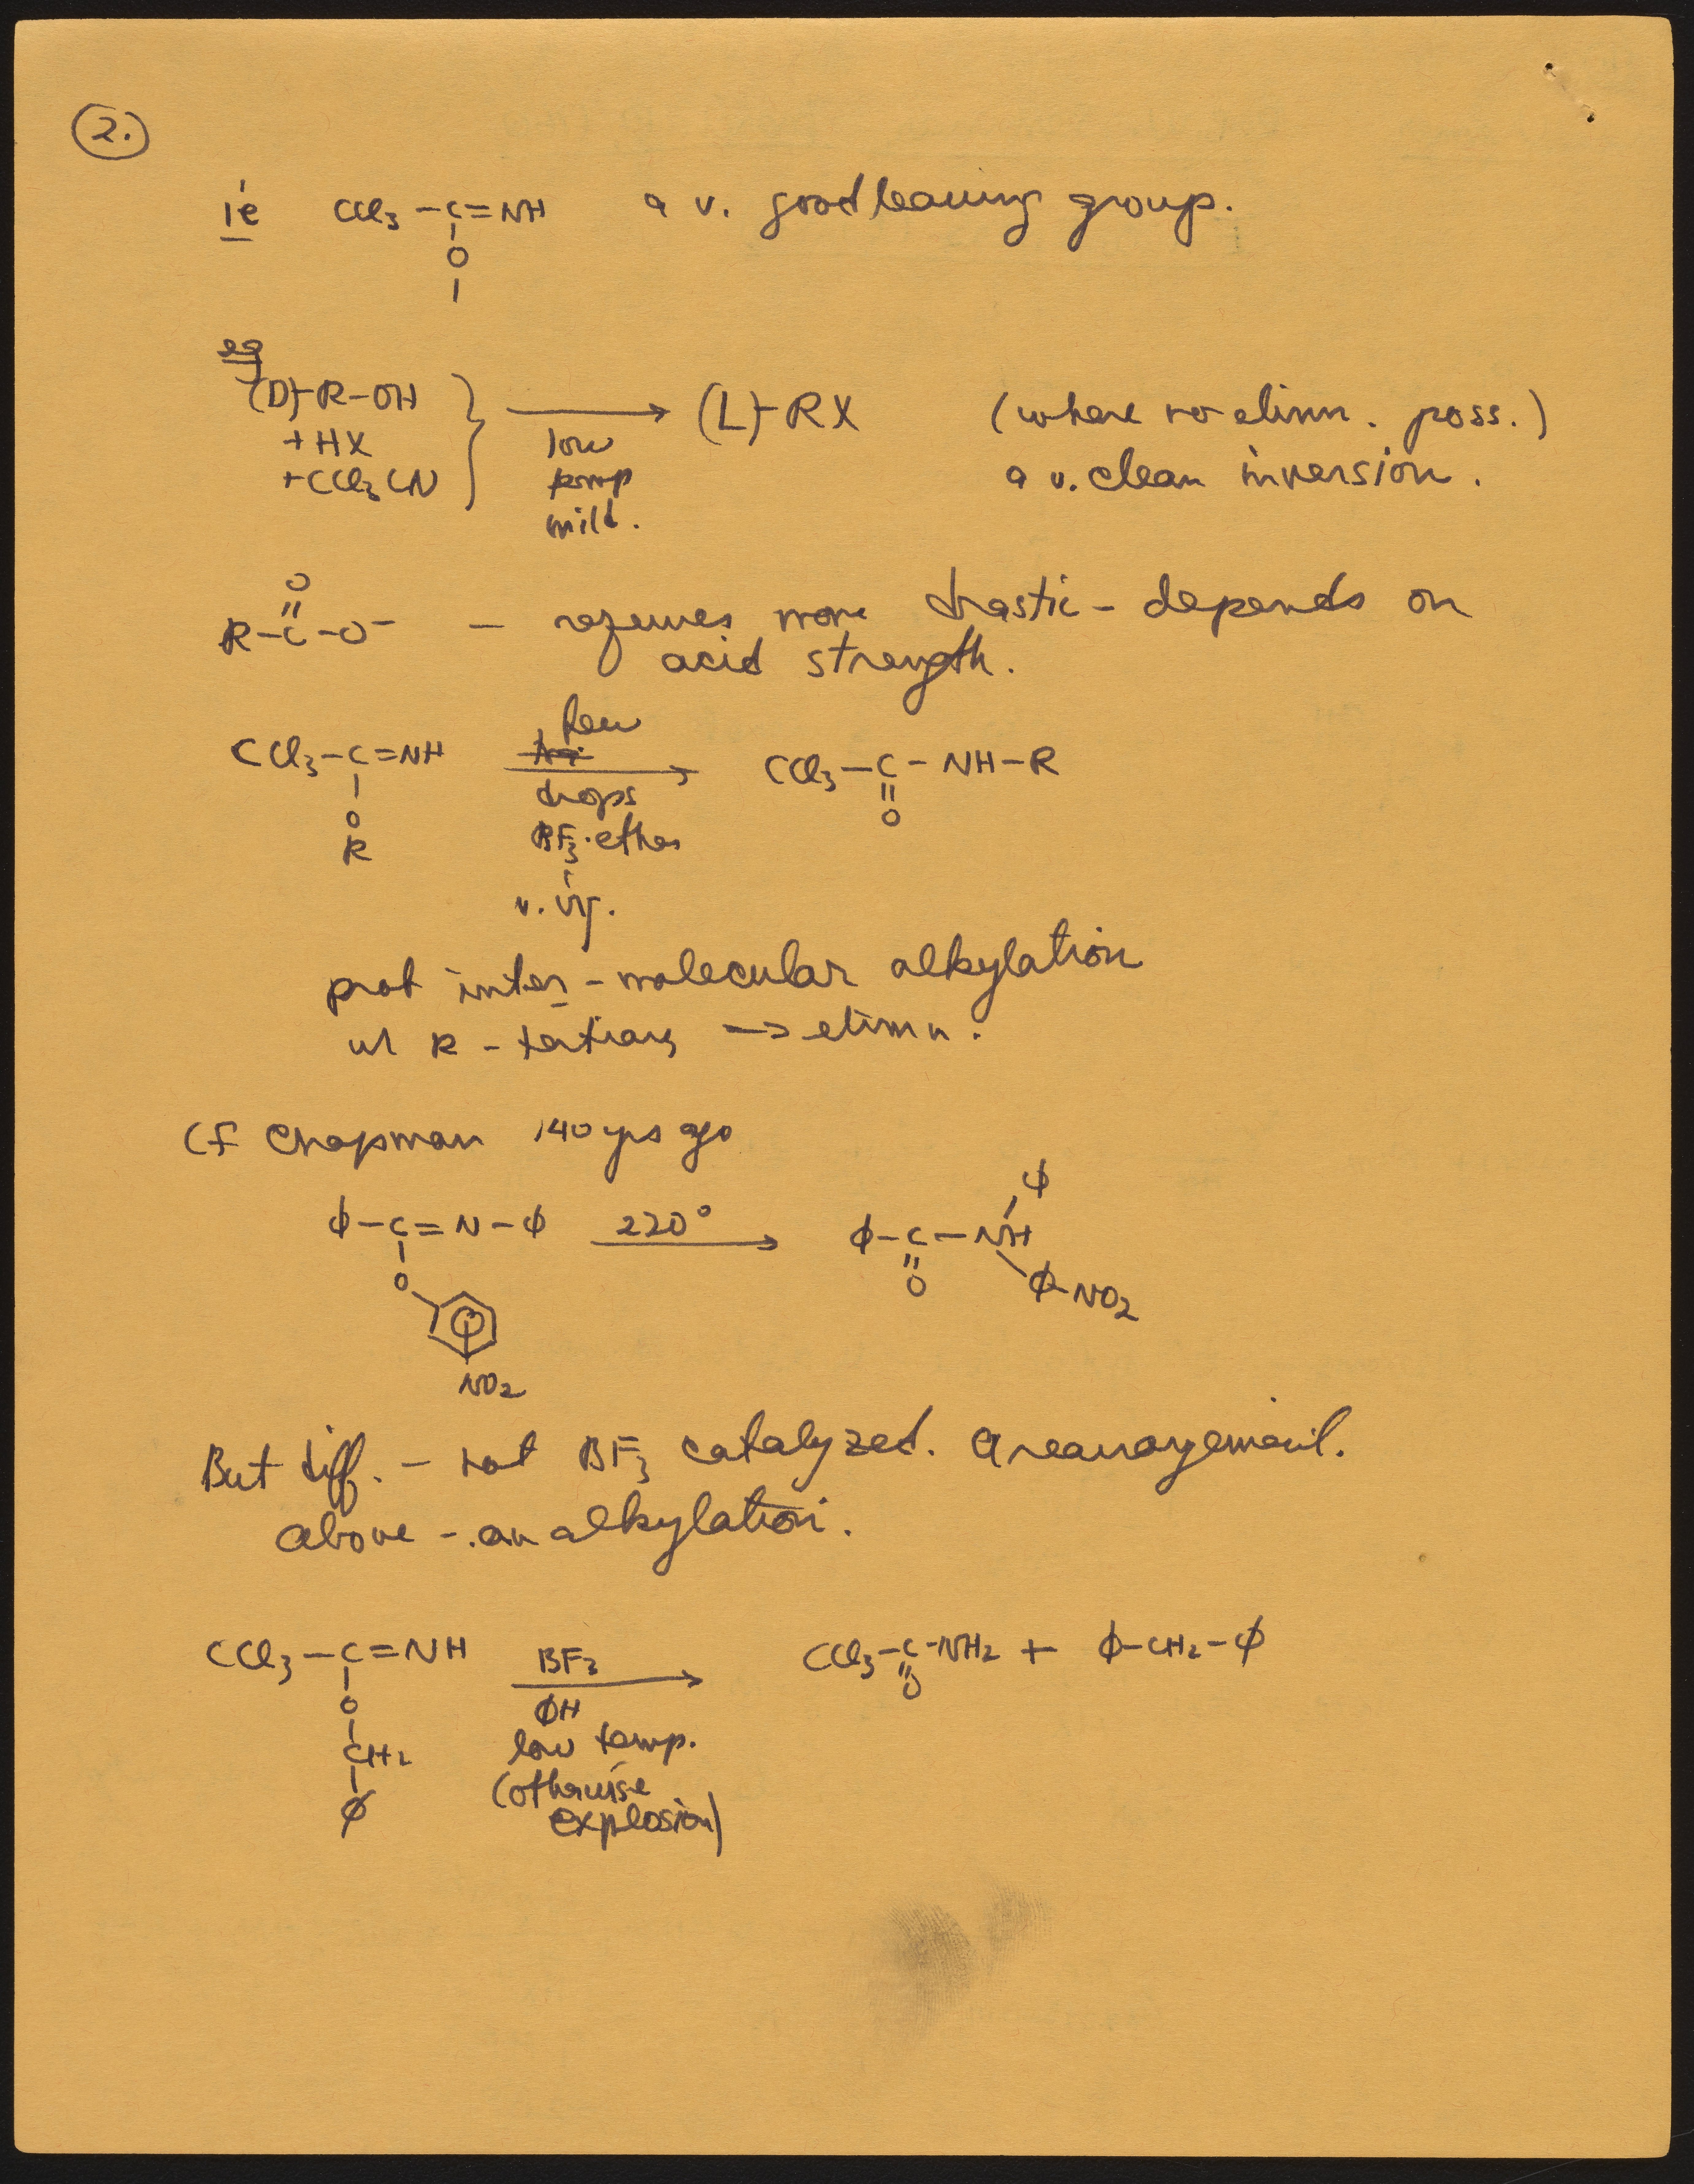 2.
ie CCl3-C=NH a v. good leaving group.
O
eg
(D)-R-OH
+ HX
+ CCl3CN
low
temp
mild.
(L)-RX
(where no elimn. poss.)
a v. clean inversion.
O
R-C-O- - requires more drastic - depends on
acid strength.
CCl3-C=NH
O
R
few
drops
BF3·ether
v. vig.
CCl3-C-NH-R
O
prob inter-molecular alkylation
w/ R-tertiary → elimn.
Cf Chapman 140 yrs ago
ϕ-C=N-ϕ
O
NO2
220°
ϕ-C-NH
O
ϕ
ϕ-NO2
But diff. - not BF3 catalyzed. A rearrangement.
above - an alkylation.
CCl3-C=NH
O
CH2
ϕ
BF3
ϕH
low temp.
(otherwise
explosion)
CCl3-C-NH2 + ϕ-CH2-ϕ
O